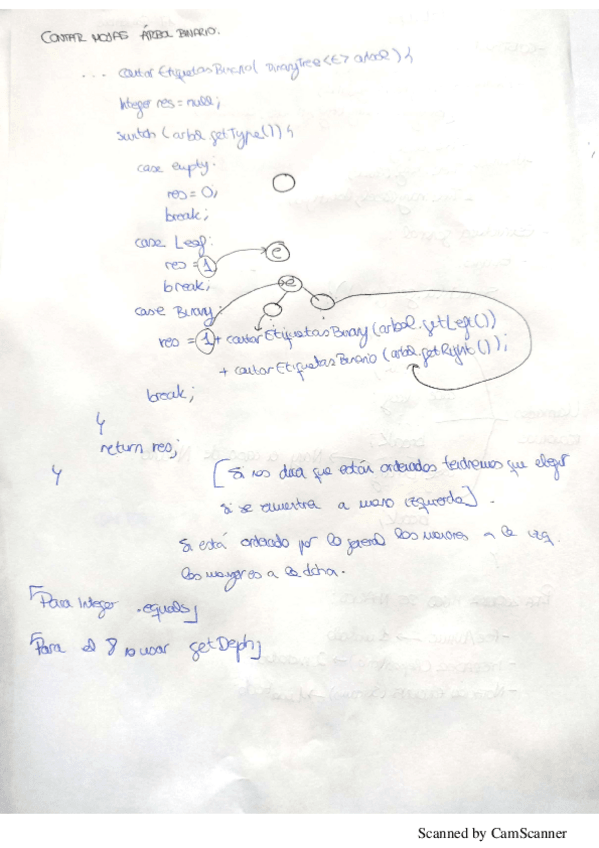 CONTAR HOJAS ÁRBOL BINARIO.
... contarEtiquetasBinario( BinaryTree<E> arbol ) {
Integer res = null;
switch (arbol.getType()) {
case empty:
res = 0;
break;
case Leaf:
res = 1
e
break;
e
case Binary:
res = 1 + contarEtiquetasBinary (arbol.getLeft())
+ contarEtiquetasBinario (arbol.getRight());
break;
}
return res;
}
[Si nos dice que están ordenados tendremos que elegir
si se encuentra a mano izquierda].
Si está ordenado por lo general los menores a la izq.
los mayores a la dcha.
[Para Integer .equals]
[Para el 8 no usar getDeph]
Scanned by CamScanner